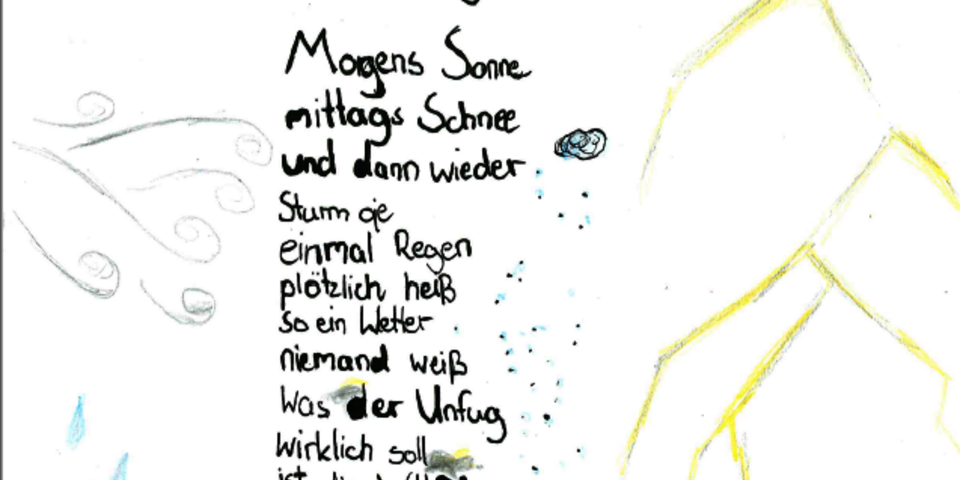 Morgens Sonne
mittags Schnee
und dann wieder
Sturm oje
einmal Regen
plötzlich heiß
so ein Wetter
niemand weiß
was der Unfug
wirklich soll
ist